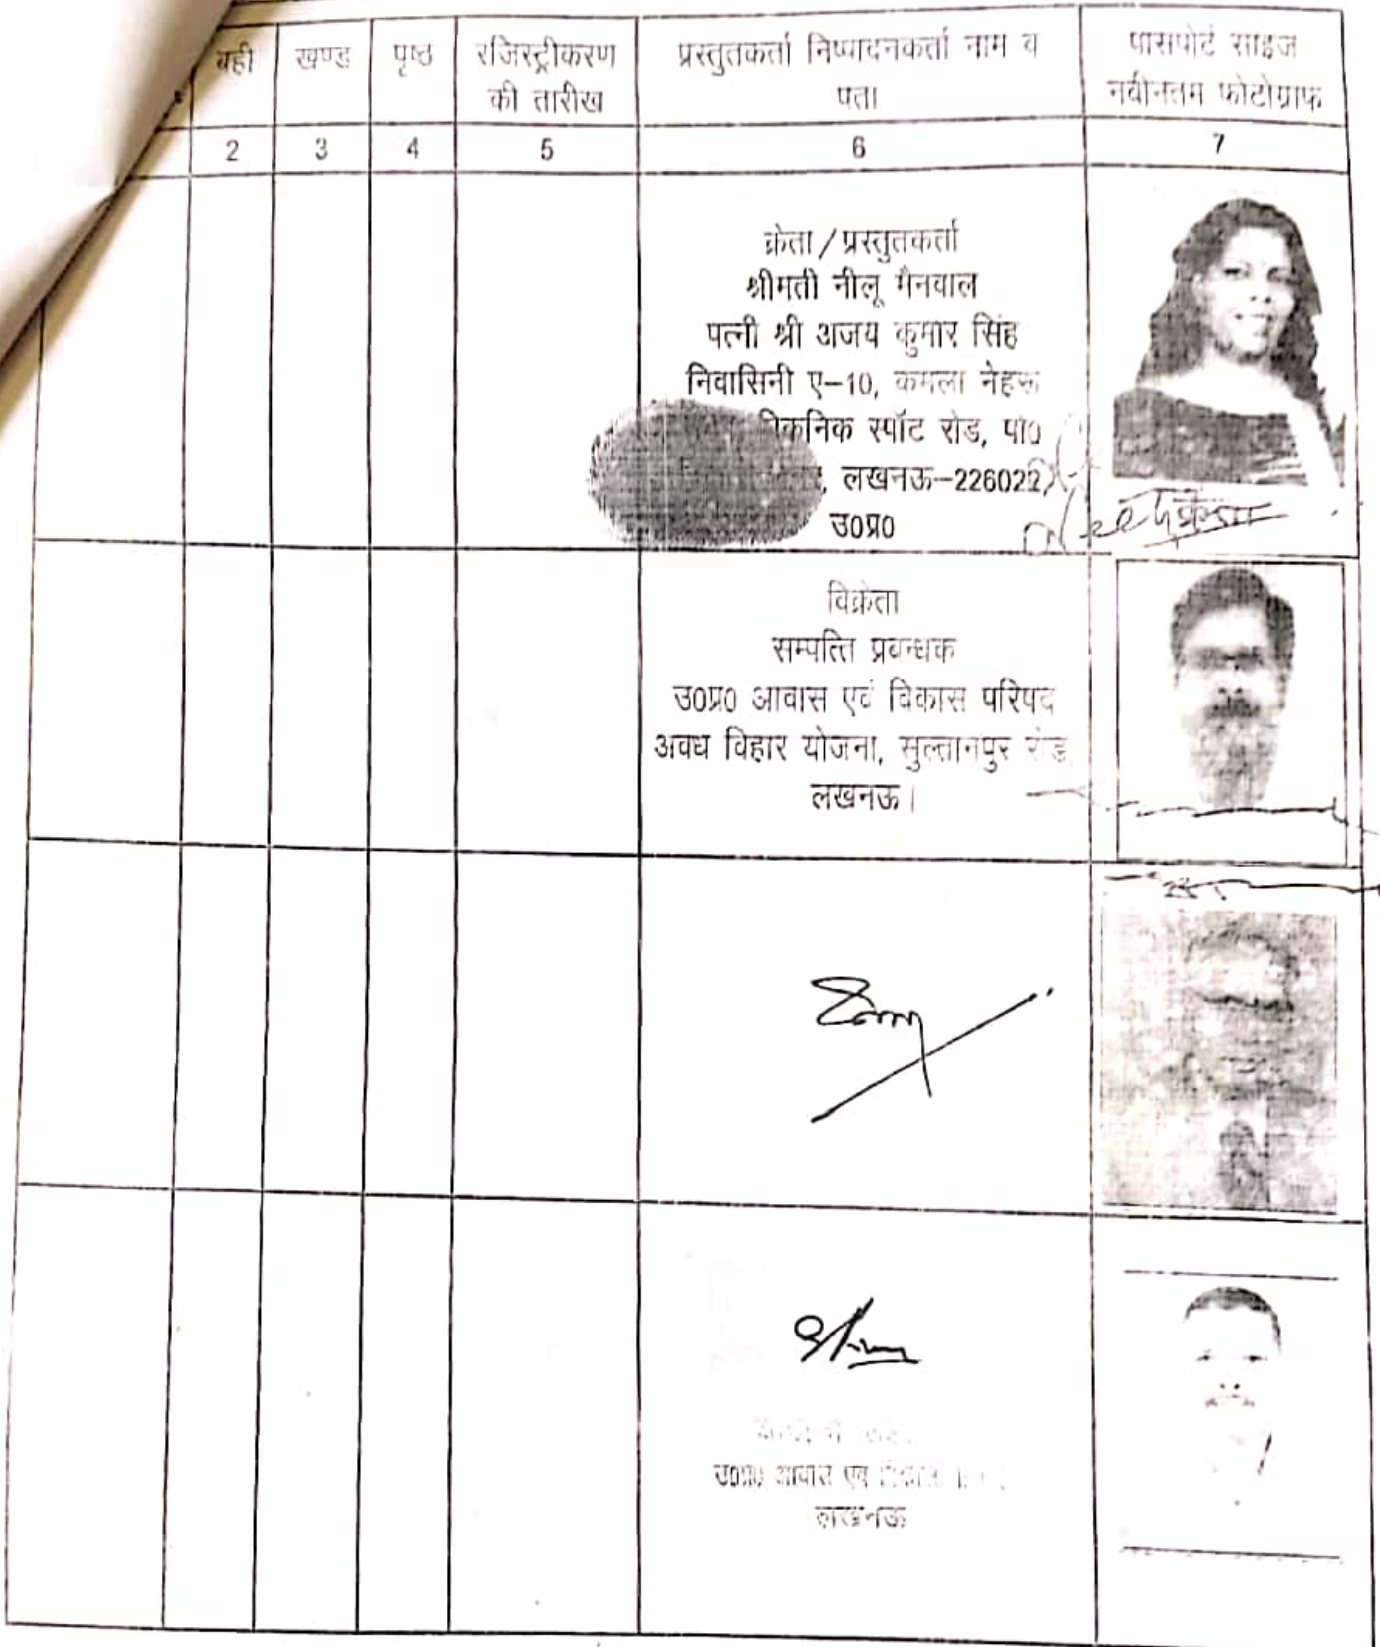 बही
खण्ड
पृष्ठ
रजिस्ट्रीकरण
की तारीख
प्रस्तुतकर्ता निष्पादनकर्ता नाम व
पता
पासपोर्ट साइज
नवीनतम फोटोग्राफ
2 3 4 5 6 7
क्रेता/प्रस्तुतकर्ता
श्रीमती नीलू मैनवाल
पत्नी श्री अजय कुमार सिंह
निवासिनी ए-10, कमला नेहरू
पिकनिक स्पॉट रोड, पो0
, लखनऊ-226022,
उ0प्र0
विक्रेता
सम्पत्ति प्रबन्धक
उ0प्र0 आवास एवं विकास परिषद
अवध विहार योजना, सुल्तानपुर रोड,
लखनऊ।
उ0प्र0 आवास एवं विकास
लखनऊ